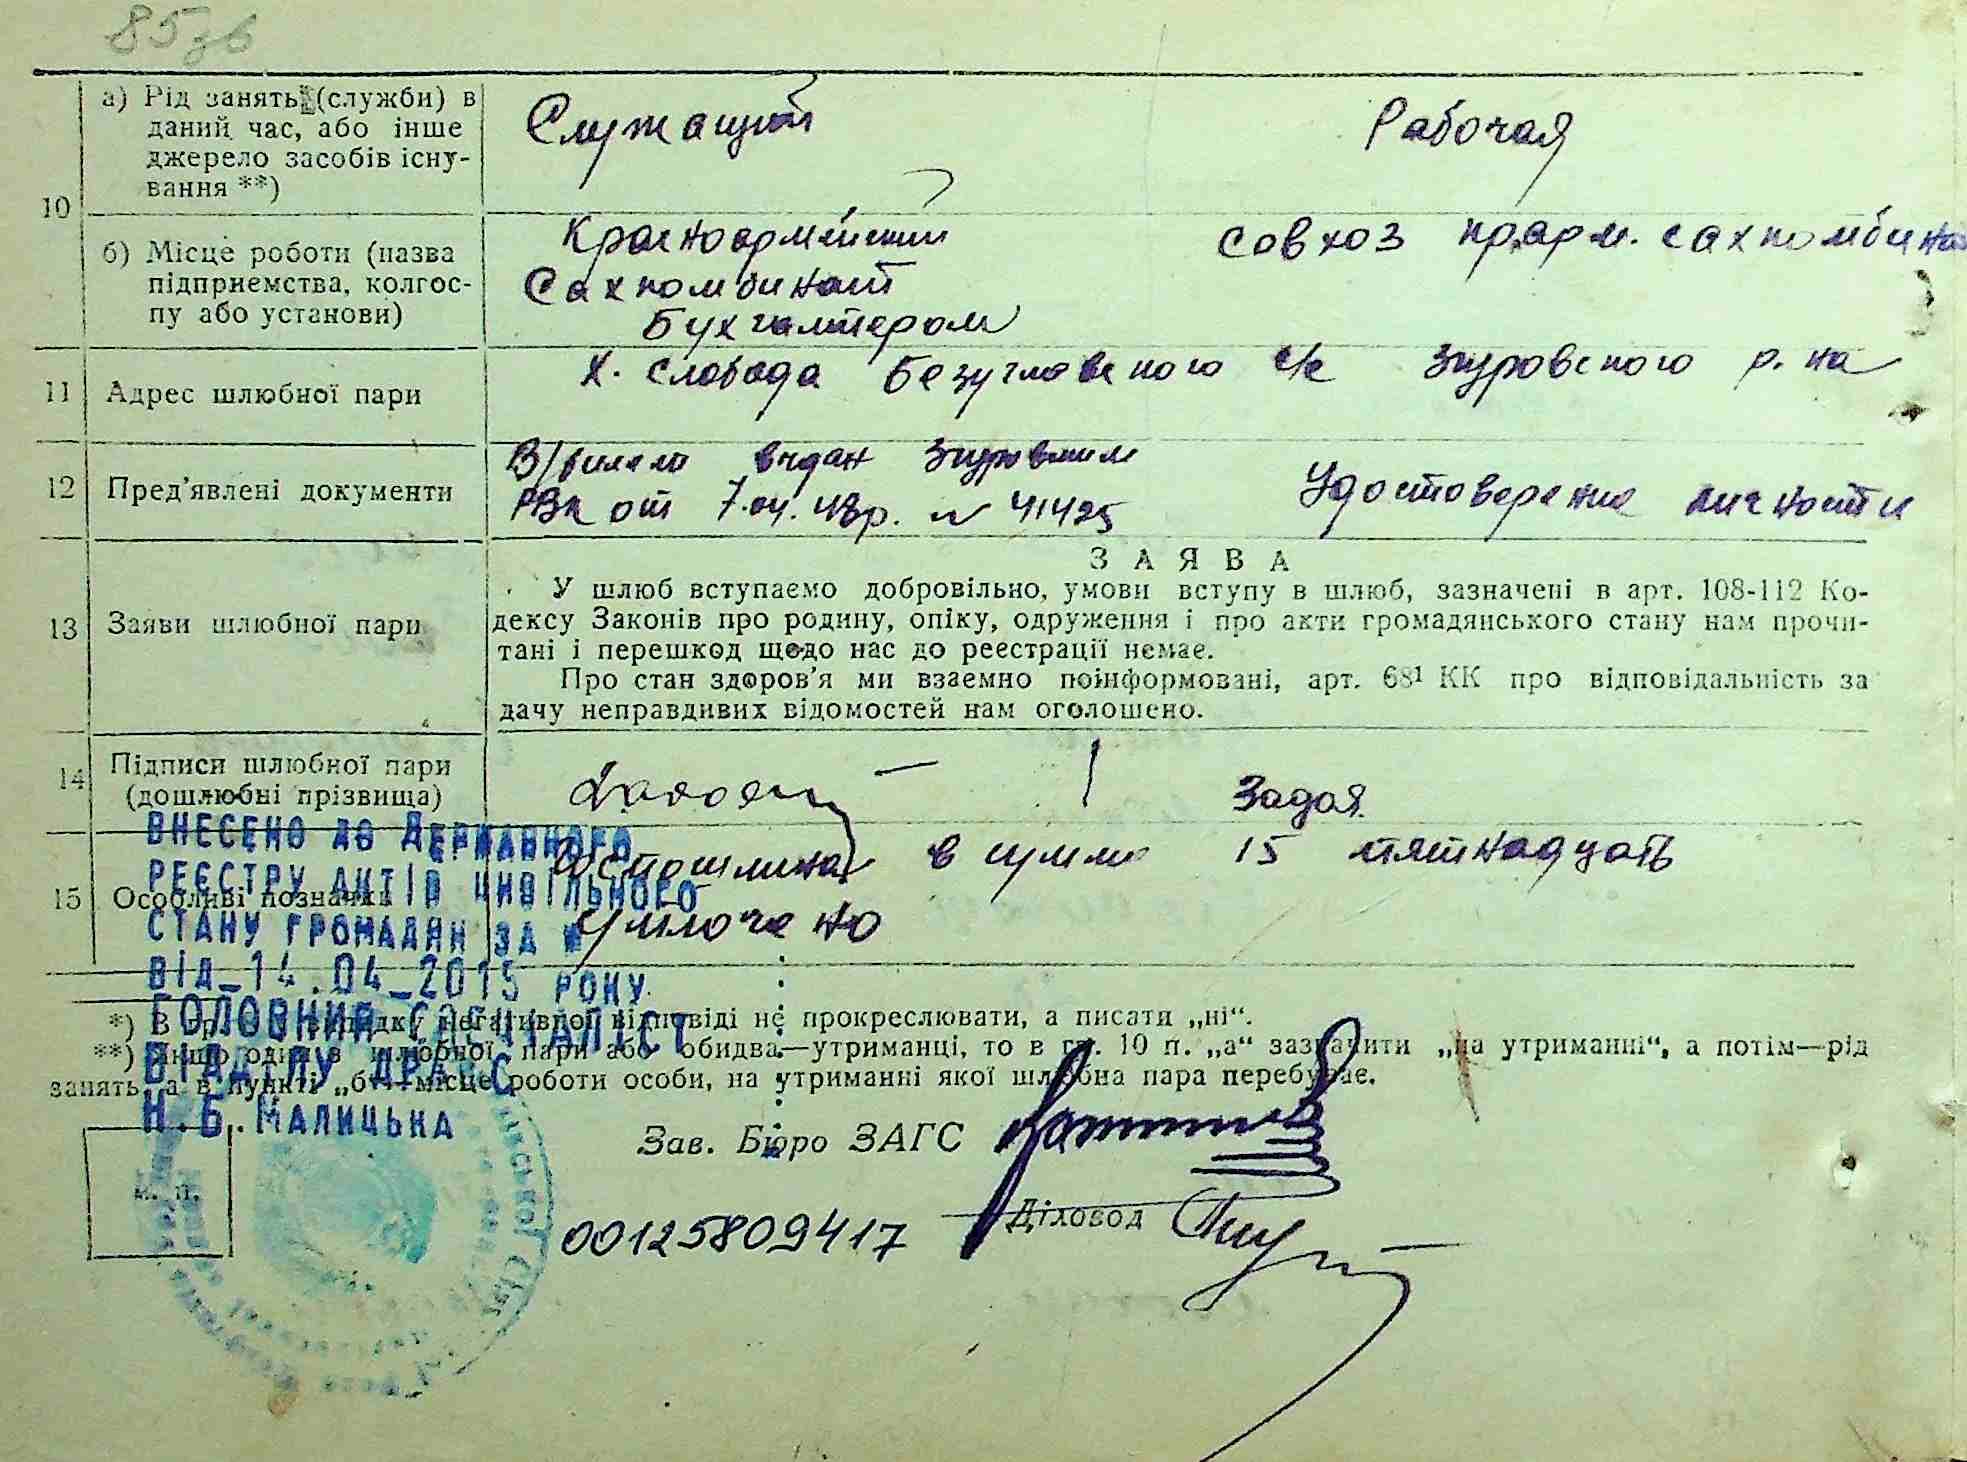 85зв
10
а) Рід занять (служби) в
даний час, або інше
джерело засобів існу-
вання **)
Служащий
Рабочая
б) Місце роботи (назва
підприємства, колгос-
пу або установи)
Красноармейский
Сахкомбинат
Бухгалтером
совхоз кр.арм. сахкомбината
11 Адрес шлюбної пари
х. Слобода Безугловского с/с Згуровского р-на
12 Пред’явлені документи
В/билет выдан Згуровским
РВК от 7.04.48р. № 41425
Удостоверение личности
13 Заяви шлюбної пари
ЗАЯВА
У шлюб вступаємо добровільно, умови вступу в шлюб, зазначені в арт. 108-112 Ко-
дексу Законів про родину, опіку, одруження і про акти громадянського стану нам прочи-
тані і перешкод щодо нас до реєстрації немає.
Про стан здоров’я ми взаємно поінформовані, арт. 68¹ КК про відповідальність за
дачу неправдивих відомостей нам оголошено.
14 Підписи шлюбної пари
(дошлюбні прізвища)
Задоя
15 Особливі позначки
Госпошлина в сумме 15 пятнадцать
уплочено
ВНЕСЕНО ДО ДЕРЖАВНОГО
РЕЄСТРУ АКТІВ ЦИВІЛЬНОГО
СТАНУ ГРОМАДЯН ЗА №
ВІД 14.04.2015 РОКУ
ГОЛОВНИЙ СПЕЦІАЛІСТ
ВІДДІЛУ ДРАЦС
Н.Б.МАЛИЦЬКА
*) В випадку негативної відповіді не прокреслювати, а писати „ні“.
**) Якщо один з шлюбної пари або обидва—утриманці, то в гр. 10 п. „а“ зазначити „на утриманні“, а потім—рід
занять, а в пункті „б“—місце роботи особи, на утриманні якої шлюбна пара перебуває.
м. п.
Зав. Бюро ЗАГС
Діловод
00125809417